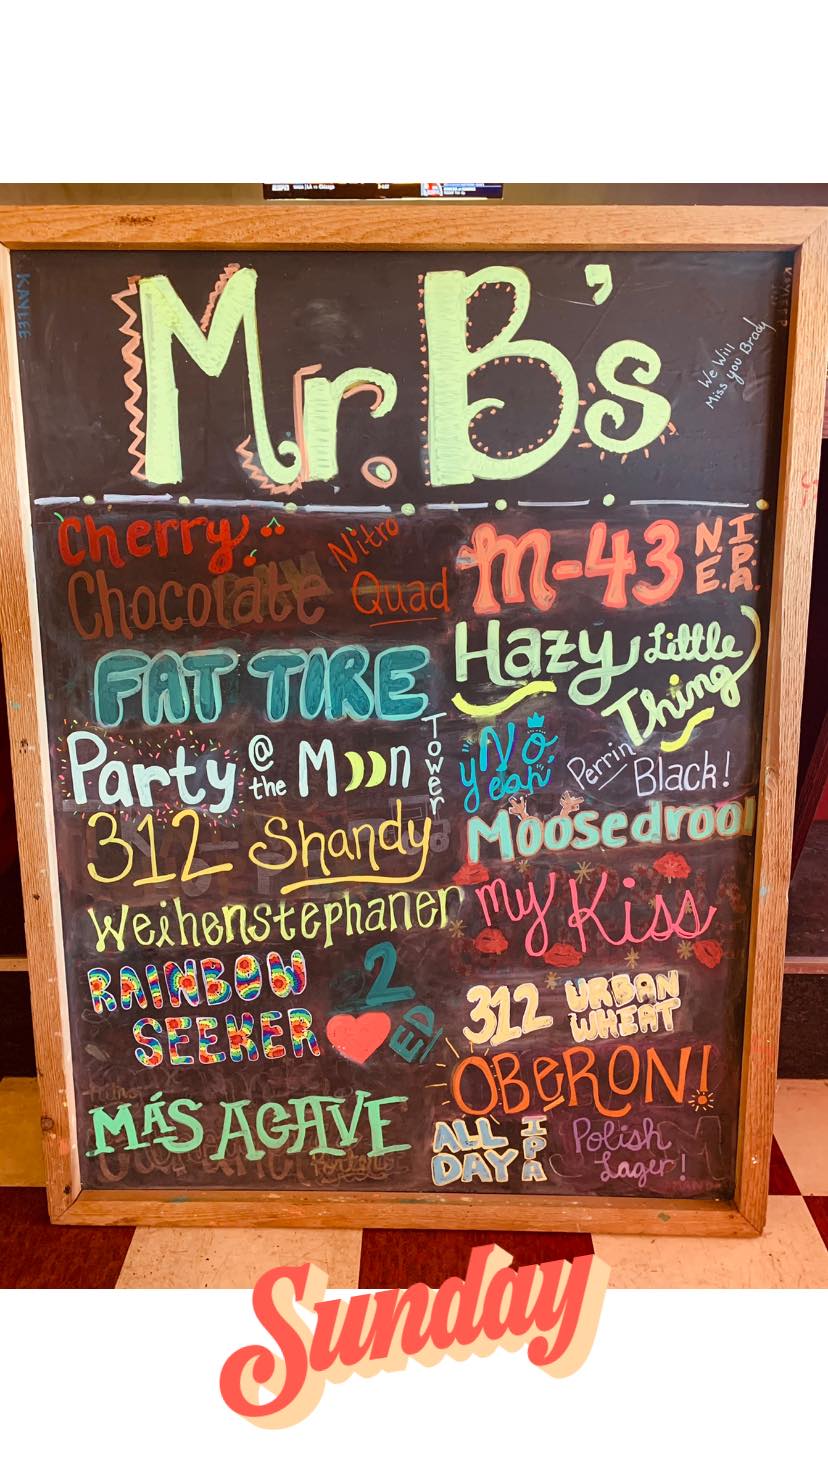 KAYLEE
Mr. B's
We Will
Miss you Brady
Cherry
Chocolate
Nitro
Quad
FAT TIRE
Party @ the Moon Tower
312 Shandy
Weihenstephaner
RAINBOW
SEEKER
2
ED
MÁS AGAVE
M-43 N.E. I.P.A.
Hazy Little
Thing
No
yeah
Perrin
Black!
Moosedrool
My Kiss
312 URBAN
WHEAT
OBERON!
ALL
DAY IPA
Polish
Lager!
Sunday